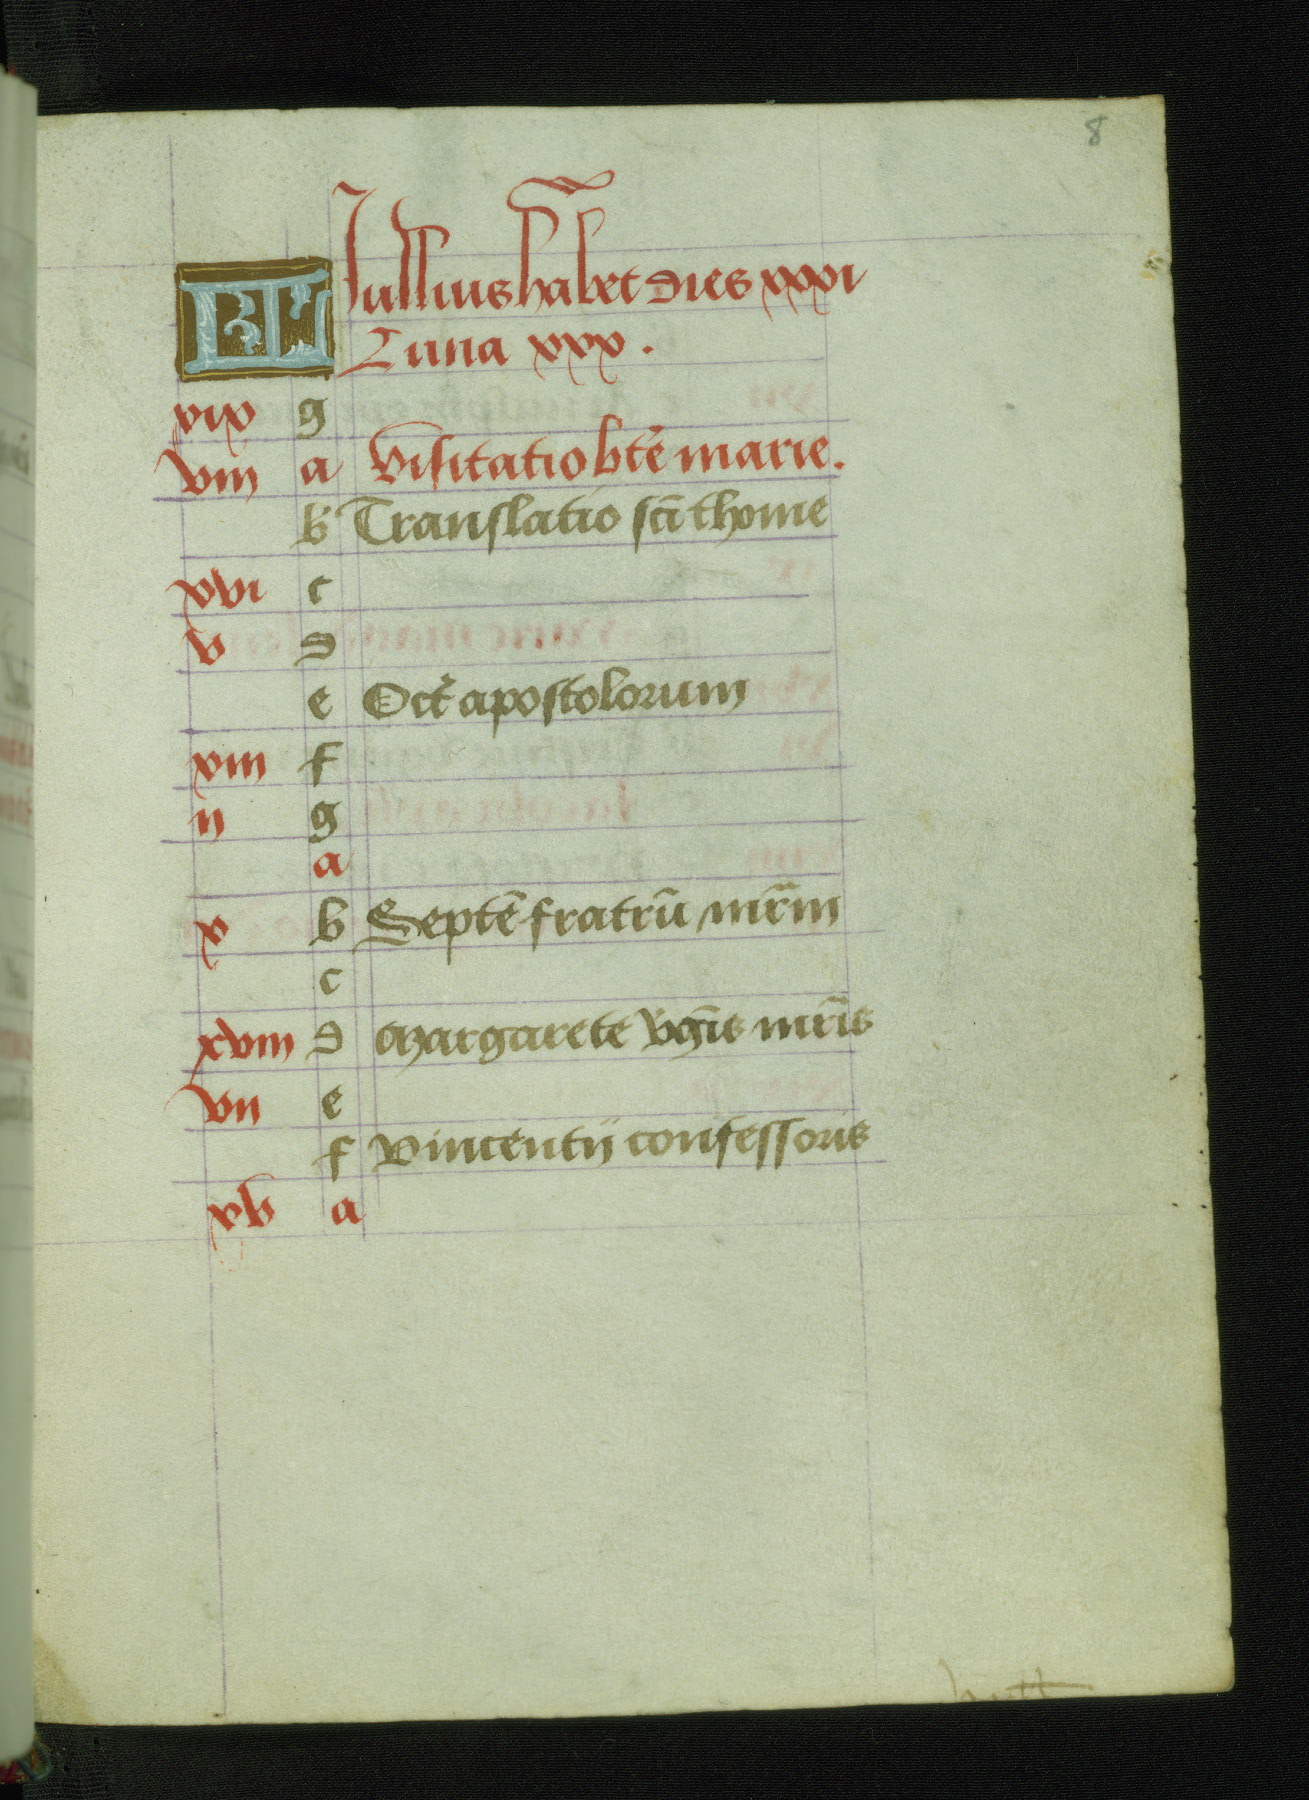 8
KL Jullius habet dies xxxi
Luna xxx.
xix g
viii a Visitatio bte̅ marie.
b Translatio sci̅ thome
xvi c
v d
e Oct̅ apostolorum
xiii f
ii g
a
x b Septe̅ fratru̅ mr̅m
c
xviii d Margarete v̾gi̅s mr̅is
vii e
f Vincentii confessoris
xv a